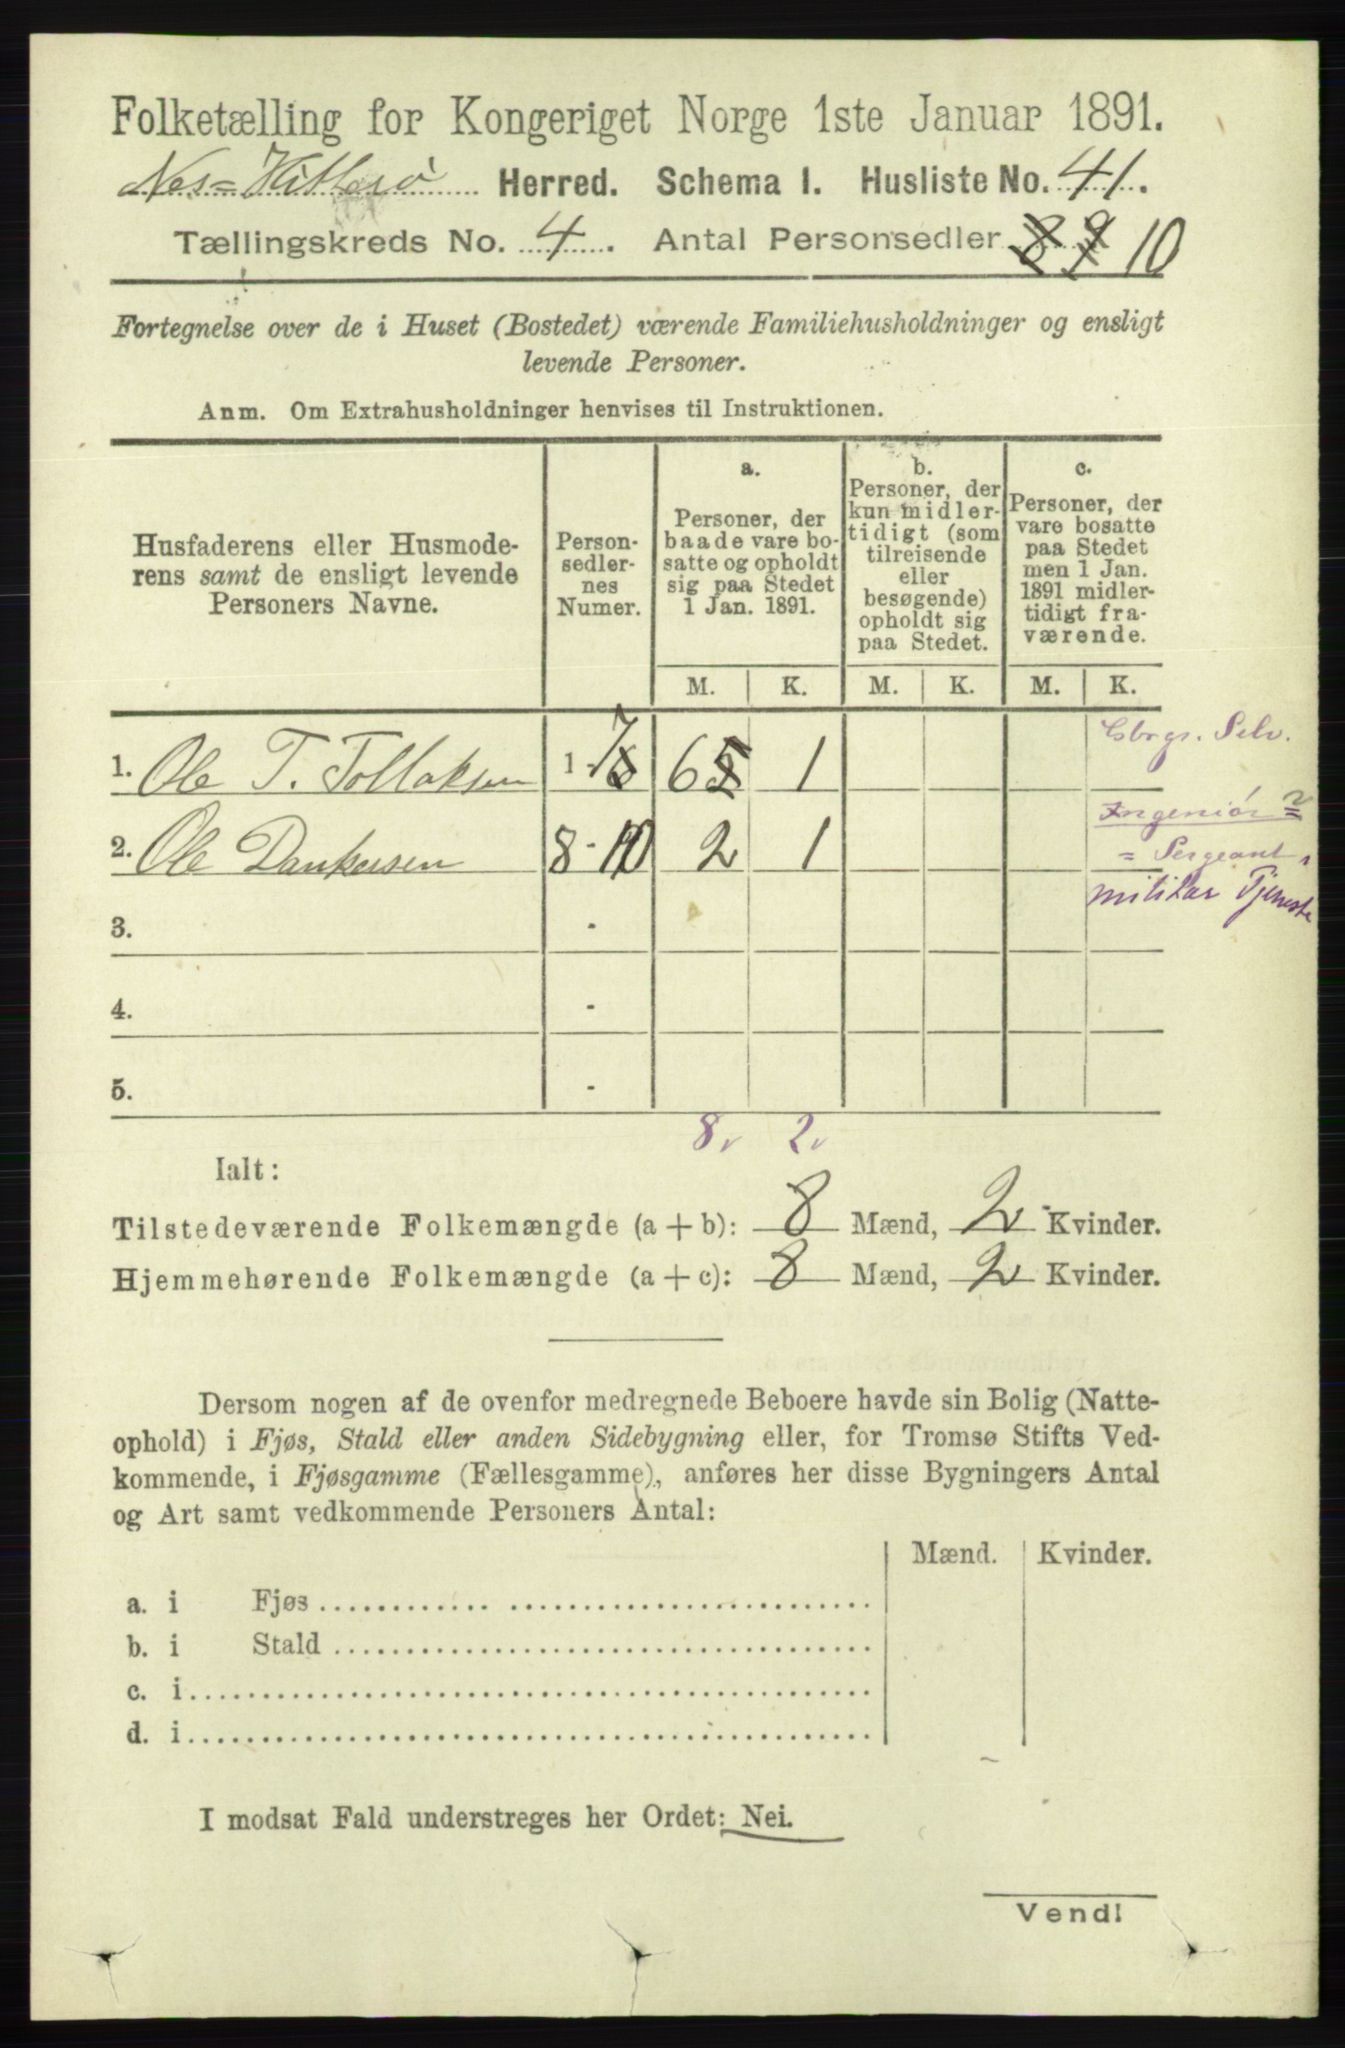 Folketælling for Kongeriget Norge 1ste Januar 1891.
Nes=Hitterø Herred. Schema I. Husliste No. 41.
Tællingskreds No. 4. Antal Personsedler 8 9 10
Fortegnelse over de i Huset (Bostedet) værende Familiehusholdninger og ensligt
levende Personer.
Anm. Om Extrahusholdninger henvises til Instruktionen.
Husfaderens eller Husmode-
rens samt de ensligt levende
Personers Navne.
Person-
sedler-
nes
Numer.
a.
Personer, der
baade vare bo-
satte og opholdt
sig paa Stedet
1 Jan. 1891.
b.
Personer, der
kun midler-
tidigt (som
tilreisende
eller
besøgende)
opholdt sig
paa Stedet.
c.
Personer, der
vare bosatte
paa Stedet
men 1 Jan.
1891 midler-
tidigt fra-
værende.
M. K. M. K. M. K.
1. Ole T. Tollaksen 1-7 6 5 1
2. Ole Dankersen 8-10 2 1
Ingeniør
= Sergeant
militær Tjeneste
3. -
4. -
5. -
8 2
Ialt:
Tilstedeværende Folkemængde (a + b): 8 Mænd, 2 Kvinder.
Hjemmehørende Folkemængde (a + c): 8 Mænd, 2 Kvinder.
Dersom nogen af de ovenfor medregnede Beboere havde sin Bolig (Natte-
ophold) i Fjøs, Stald eller anden Sidebygning eller, for Tromsø Stifts Ved-
kommende, i Fjøsgamme (Fællesgamme), anføres her disse Bygningers Antal
og Art samt vedkommende Personers Antal:
Mænd. Kvinder.
a. i Fjøs
b. i Stald
c. i
d. i
I modsat Fald understreges her Ordet: Nei.
Vend!